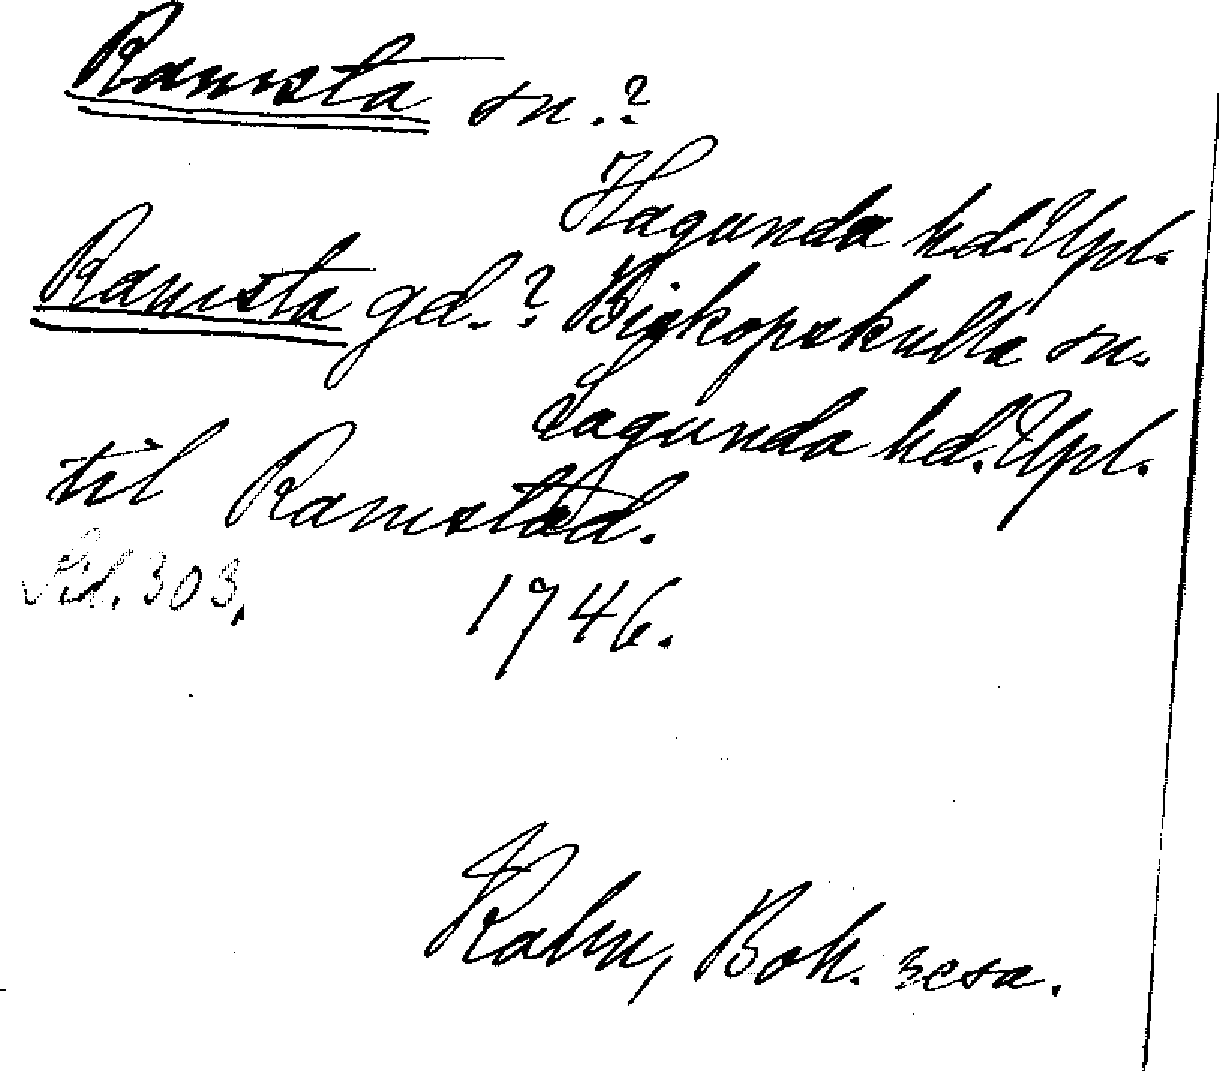 Ramsta sn.?
Hagunda hd. Upl.
Ramsta gd.? Biskopskulla sn.
Lagunda hd. Upl.
til Ramstad.
Sid. 303.
1746.
Kalm, Boh. resa.